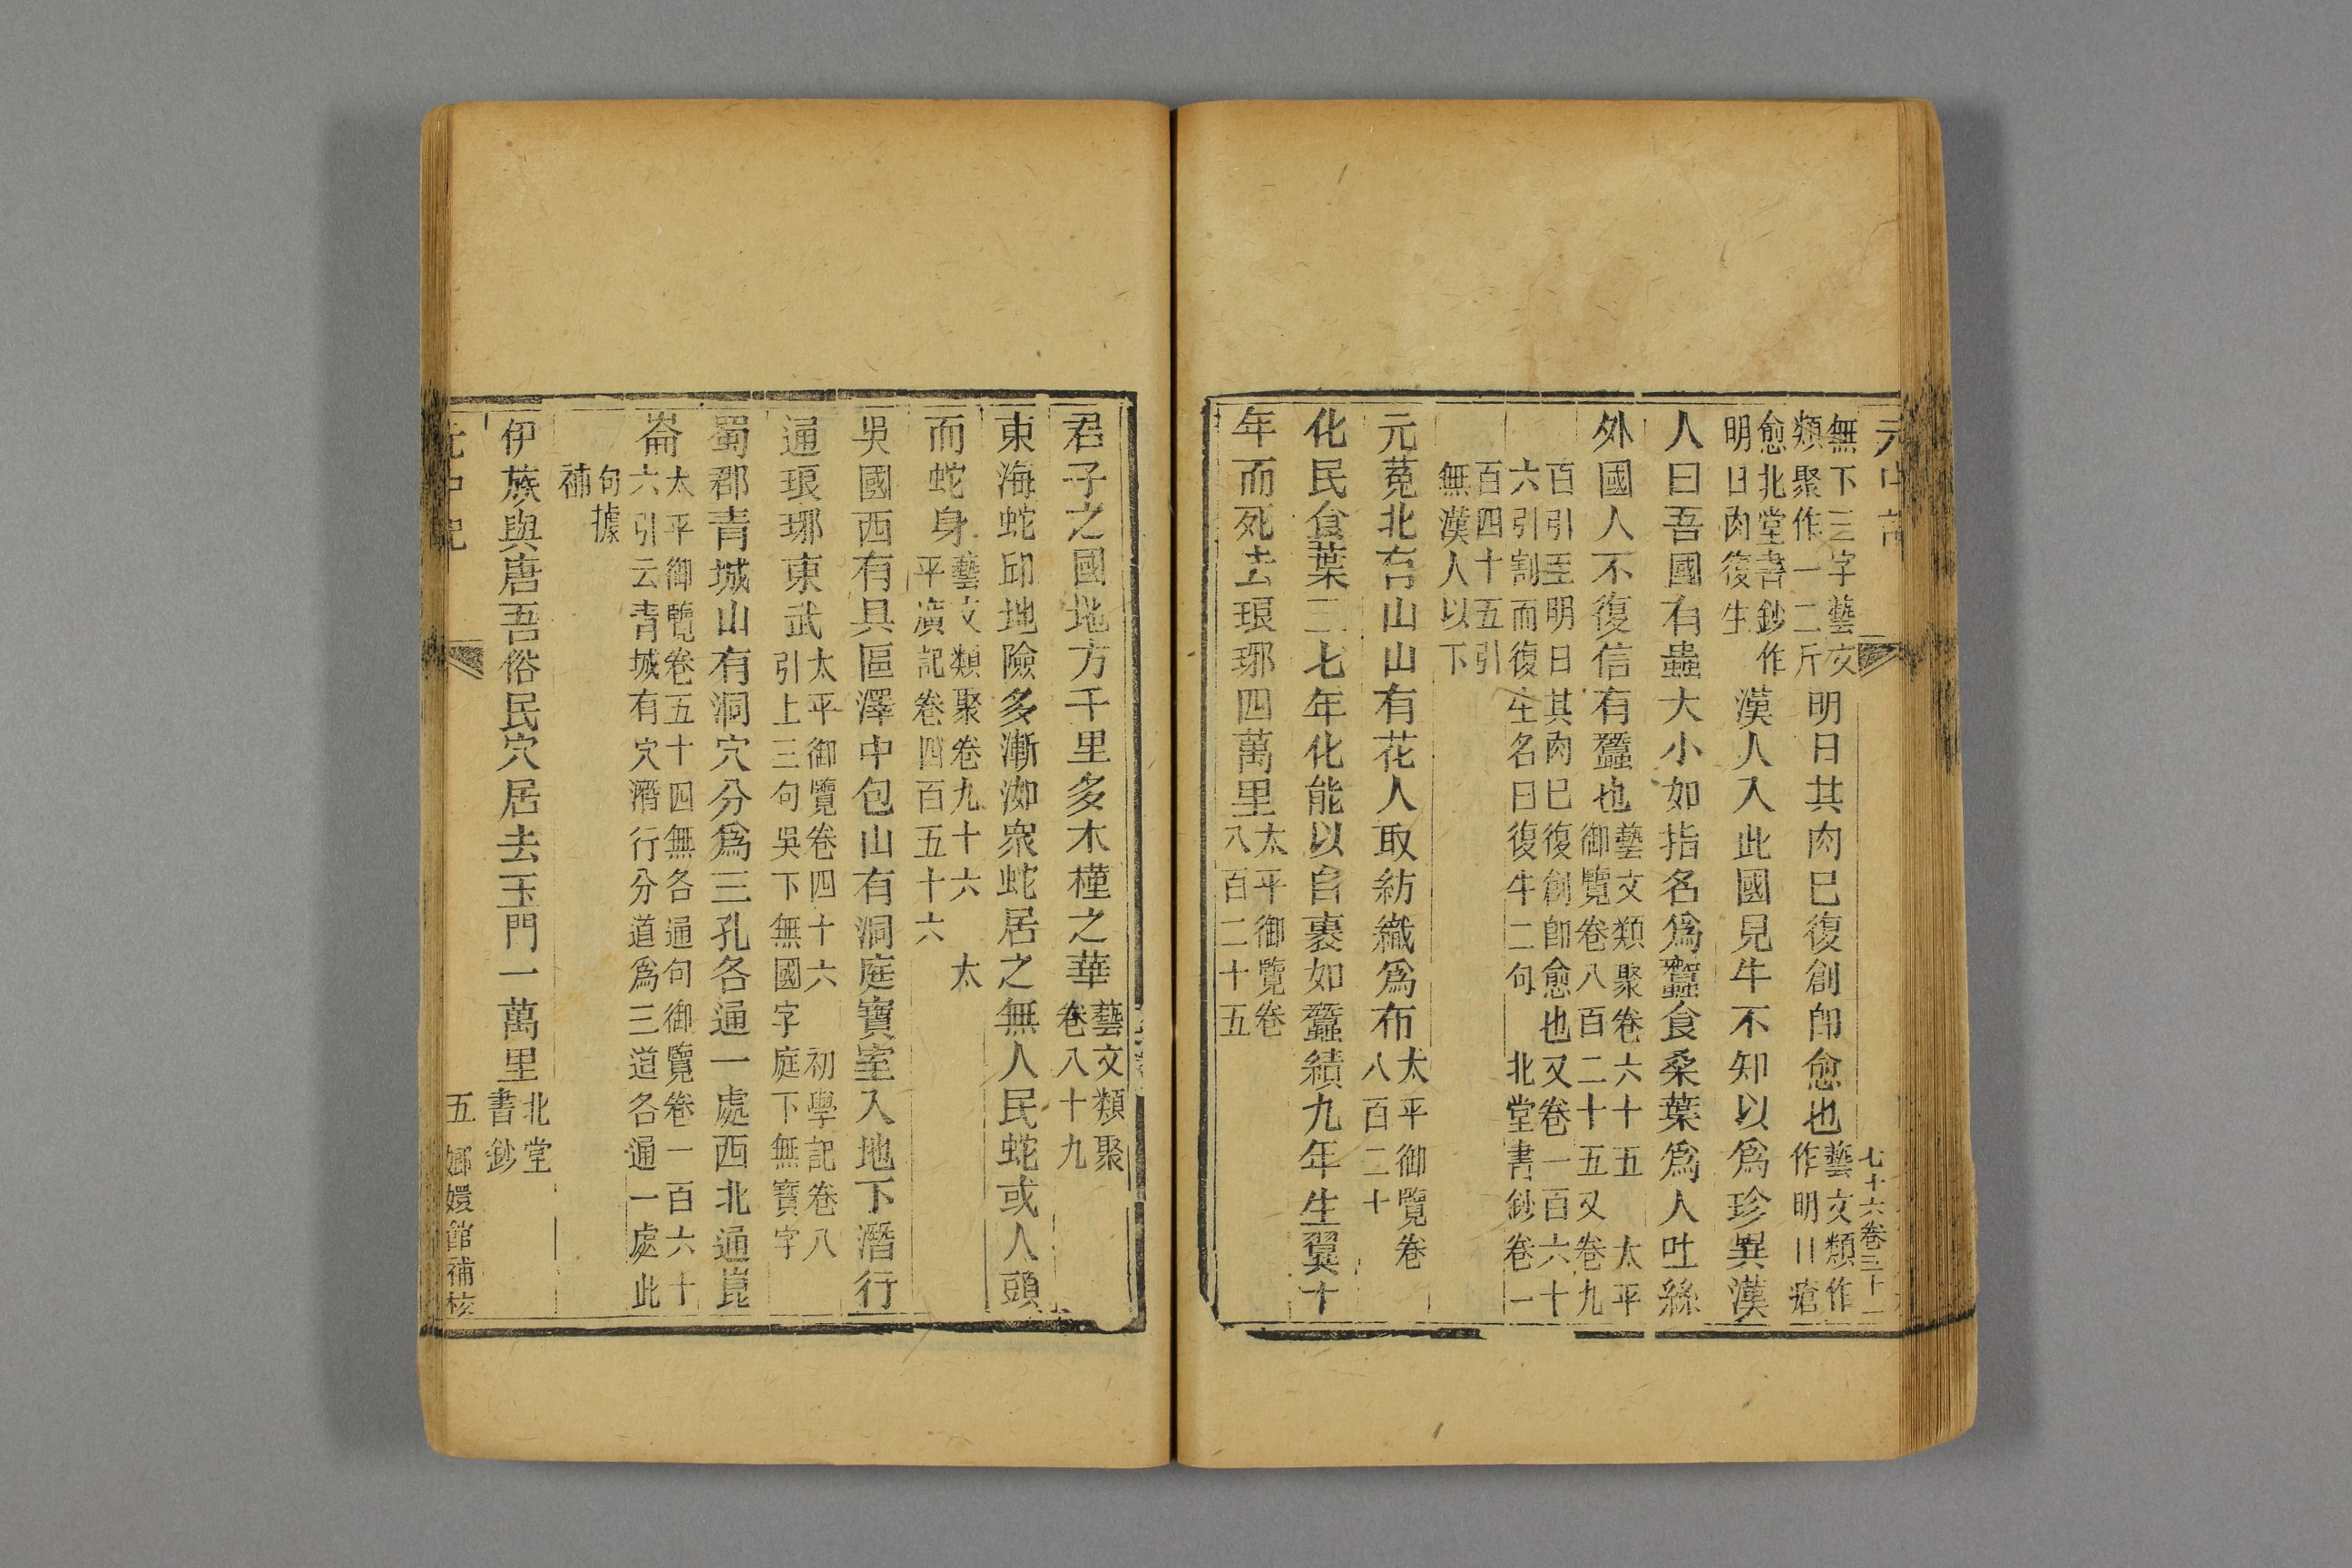 元中記
七十六卷三十一
無下三字藝文
類聚作一二斤
愈北堂書鈔作
明日肉復生
明日其肉已復創即愈也
藝文類作
作明日瘡
漢人入此國見牛不知以為珍異漢
人曰吾國有蟲大小如指名爲蠶食桑葉爲人吐絲
外國人不復信有蠶也
藝文類聚卷六十五 太平
御覽卷八百二十五又卷九
百引至明日其肉已復創即愈也又卷一百六十
六引割而復生名曰復牛二句 北堂書鈔卷一
百四十五引
無漢人以下
元菟北有山山有花人取紡織爲布
太平御覽卷
八百二十
化民食葉二七年化能以自裹如蠶績九年生翼十
年而死去琅琊四萬里
太平御覽卷
八百二十五
君子之國地方千里多木槿之華
藝文類聚
卷八十九
東海蛇邱地險多漸洳衆蛇居之無人民蛇或人頭
而蛇身
藝文類聚卷九十六 太
平廣記卷四百五十六
吳國西有具區澤中包山有洞庭寶室入地下潛行
通琅琊東武
太平御覽卷四十六 初學記卷八
引上三句吳下無國字庭下無寶字
蜀郡青城山有洞穴分爲三孔各通一處西北通崑
崙
太平御覽卷五十四無各通句御覽卷一百六十
六引云青城有穴潛行分道爲三道各通一處此
句據
補
伊族與唐吾俗民穴居去玉門一萬里
北堂
書鈔
元中記
五
嫏嬛館補校